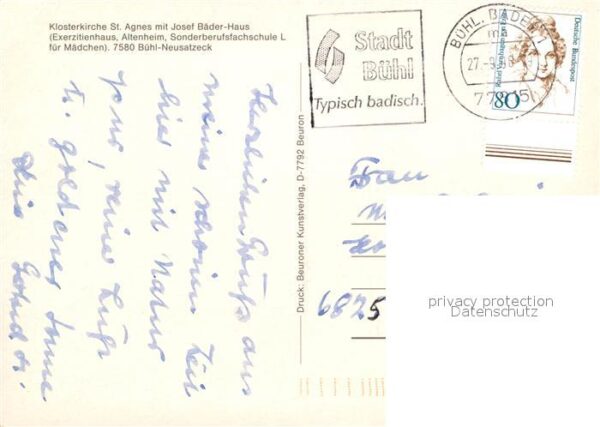 Klosterkirche St. Agnes mit Josef Bäder-Haus
(Exerzitienhaus, Altenheim, Sonderberufsfachschule L
für Mädchen). 7580 Bühl-Neusatzeck
Stadt
Bühl
Typisch badisch.
BÜHL, BADEN 1
27.-9.
77815
Deutsche Bundespost
80
Herzlichen Gruß aus
meiner schönen Zeit
hier mit Natur
pur, reine Luft
u. goldener Sonne
Druck: Beuroner Kunstverlag, D-7792 Beuron
Frau
6825
privacy protection
Datenschutz